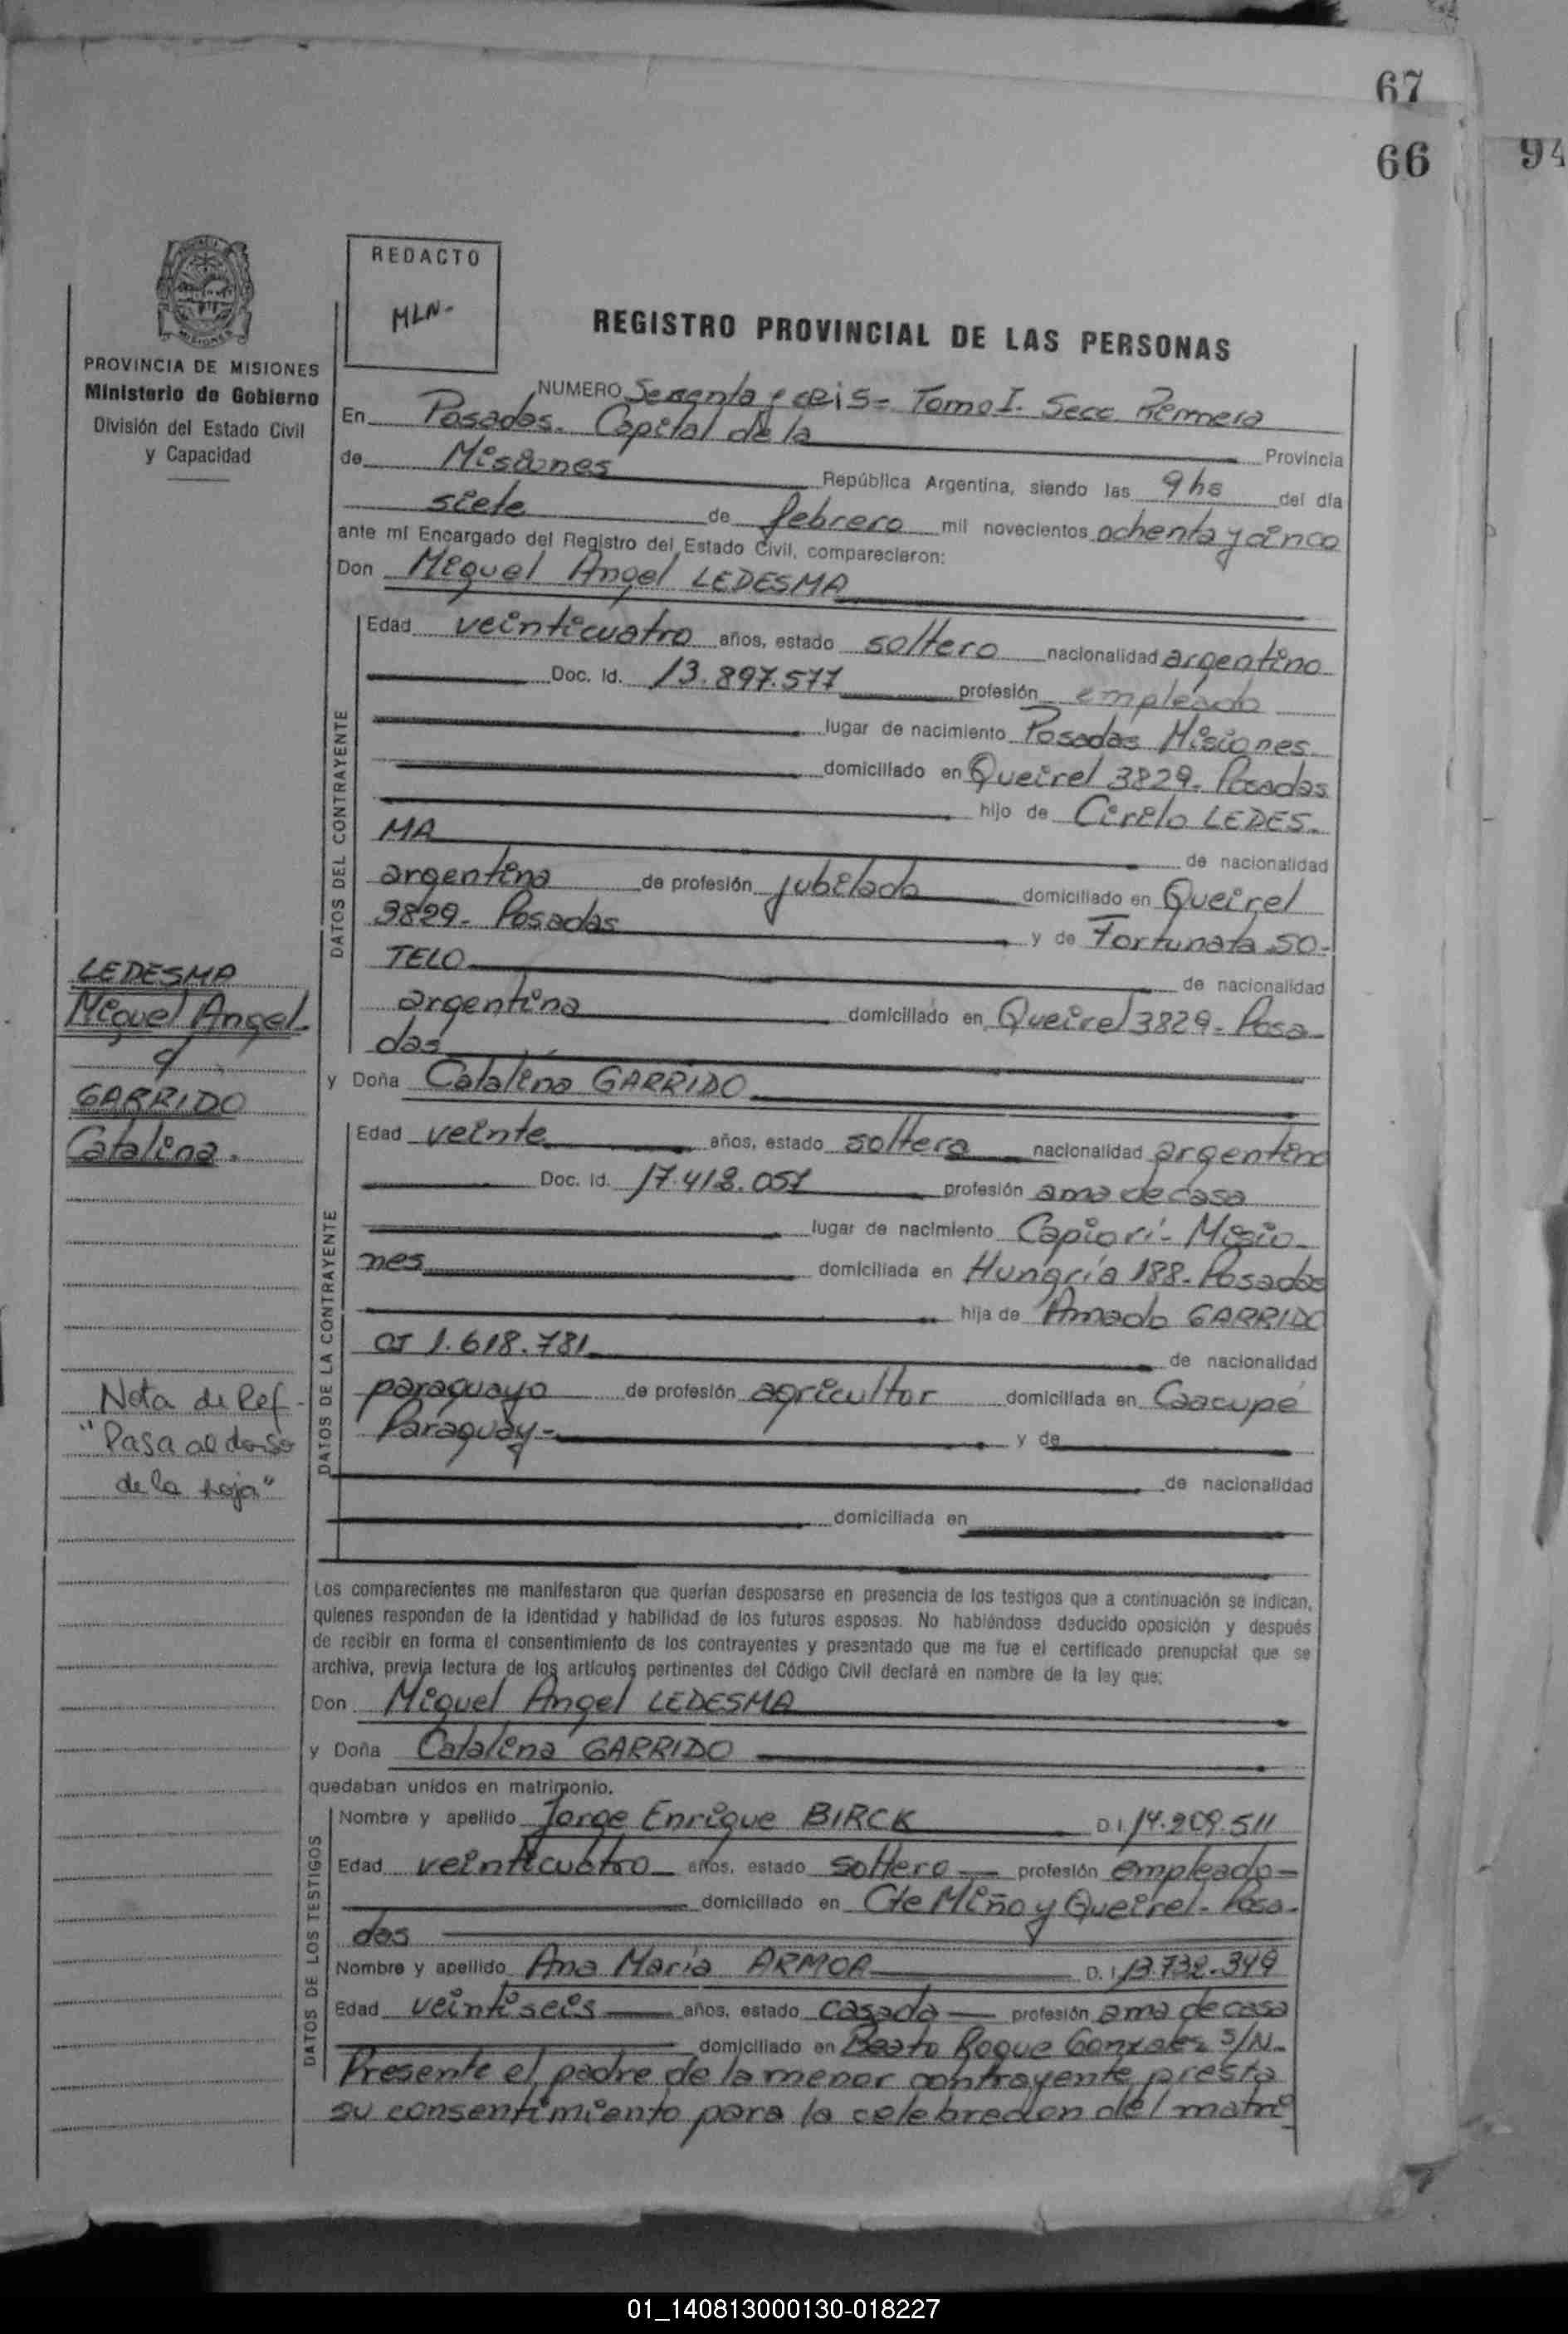 67
66
94
REDACTO
MLN-
PROVINCIA DE MISIONES
Ministerio de Gobierno
División del Estado Civil
y Capacidad
REGISTRO PROVINCIAL DE LAS PERSONAS
NUMERO Sesenta y seis= Tomo I. Secc Primera
En Posadas. Capital de la Provincia
de Misiones República Argentina, siendo las 9 hs del día
siete de febrero mil novecientos ochenta y cinco
ante mí Encargado del Registro del Estado Civil, comparecieron:
Don Miguel Angel LEDESMA
DATOS DEL CONTRAYENTE
Edad veinticuatro años, estado soltero nacionalidad argentino
Doc. Id. 13.897.577 profesión empleado
lugar de nacimiento Posadas Misiones.
domiciliado en Queirel 3829. Posadas
hijo de Cirilo LEDES-
MA de nacionalidad
argentina de profesión jubilado domiciliado en Queirel
3829- Posadas y de Fortunata SO-
TELO de nacionalidad
argentina domiciliado en Queirel 3829- Posa-
das
LEDESMA
Miguel Angel
y
GARRIDO
Catalina.
y Doña Catalina GARRIDO
DATOS DE LA CONTRAYENTE
Edad veinte años, estado soltera nacionalidad argentina
Doc. Id. 17.412.051 profesión ama de casa
lugar de nacimiento Capioví- Misio-
nes domiciliada en Hungría 188- Posadas
hija de Amado GARRIDO
CI 1.618.781 de nacionalidad
paraguayo de profesión agricultor domiciliada en Caacupé
Paraguay- y de
de nacionalidad
domiciliada en
Nota de Ref-
"Pasa al dorso
de la hoja"
Los comparecientes me manifestaron que querían desposarse en presencia de los testigos que a continuación se indican,
quienes responden de la identidad y habilidad de los futuros esposos. No habiéndose deducido oposición y después
de recibir en forma el consentimiento de los contrayentes y presentado que me fue el certificado prenupcial que se
archiva, previa lectura de los artículos pertinentes del Código Civil declaré en nombre de la ley que:
Don Miguel Angel LEDESMA
y Doña Catalina GARRIDO
quedaban unidos en matrimonio.
DATOS DE LOS TESTIGOS
Nombre y apellido Jorge Enrique BIRCK D.I. 14.209.511
Edad veinticuatro años, estado soltero profesión empleado-
domiciliado en Cte Miño y Queirel- Posa-
das
Nombre y apellido Ana María ARMOA D.I. 13.732.349
Edad veintiseis años, estado casada profesión ama de casa
domiciliado en Beato Roque Gonzalez S/N-
Presente el padre de la menor contrayente presta
su consentimiento para la celebración del matri
01_140813000130-018227